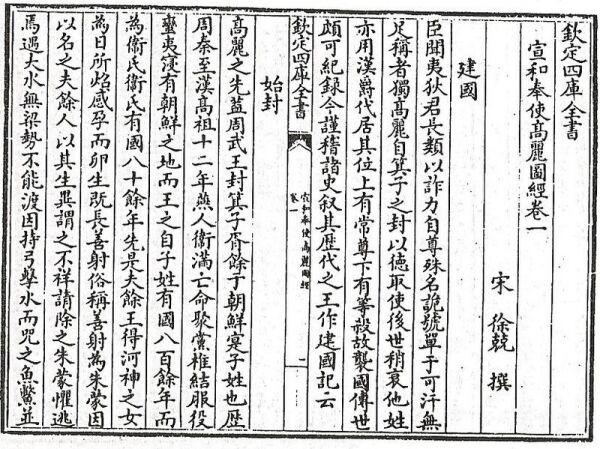 欽定四庫全書
宣和奉使髙麗圖經卷一
宋 徐兢 撰
建國
臣聞夷狄君長類以詐力自尊殊名詭號單于可汗無
足稱者獨髙麗自箕子之封以徳取使後世稍衰他姓
亦用漢爵代居其位上有常尊下有等殺故襲國傳世
頗可紀録今謹稽諸史叙其歴代之王作建國記云
欽定四庫全書
宣和奉使髙麗圖經
卷一
始封
髙麗之先蓋周武王封箕子胥餘于朝鮮寔子姓也歴
周秦至漢髙祖十二年燕人衛滿亡命聚黨椎結服役
蠻夷寖有朝鮮之地而王之自子姓有國八百餘年而
為衛氏衛氏有國八十餘年先是夫餘王得河神之女
為日所炤感孕而卵生既長善射俗稱善射為朱蒙因
以名之夫餘人以其生異謂之不祥請除之朱蒙懼逃
焉遇大水無梁勢不能渡因持弓擊水而咒之魚鼈並